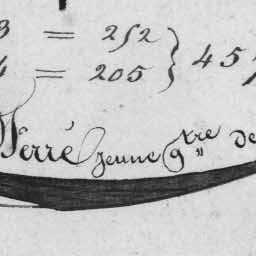 3 = 252
4 = 205 } 457
Ferré jeune g.tre de